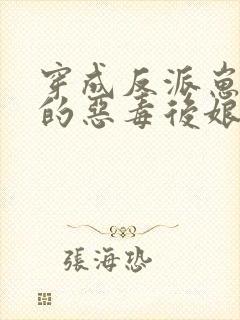 穿成反派崽
的惡毒後娘
張海恐